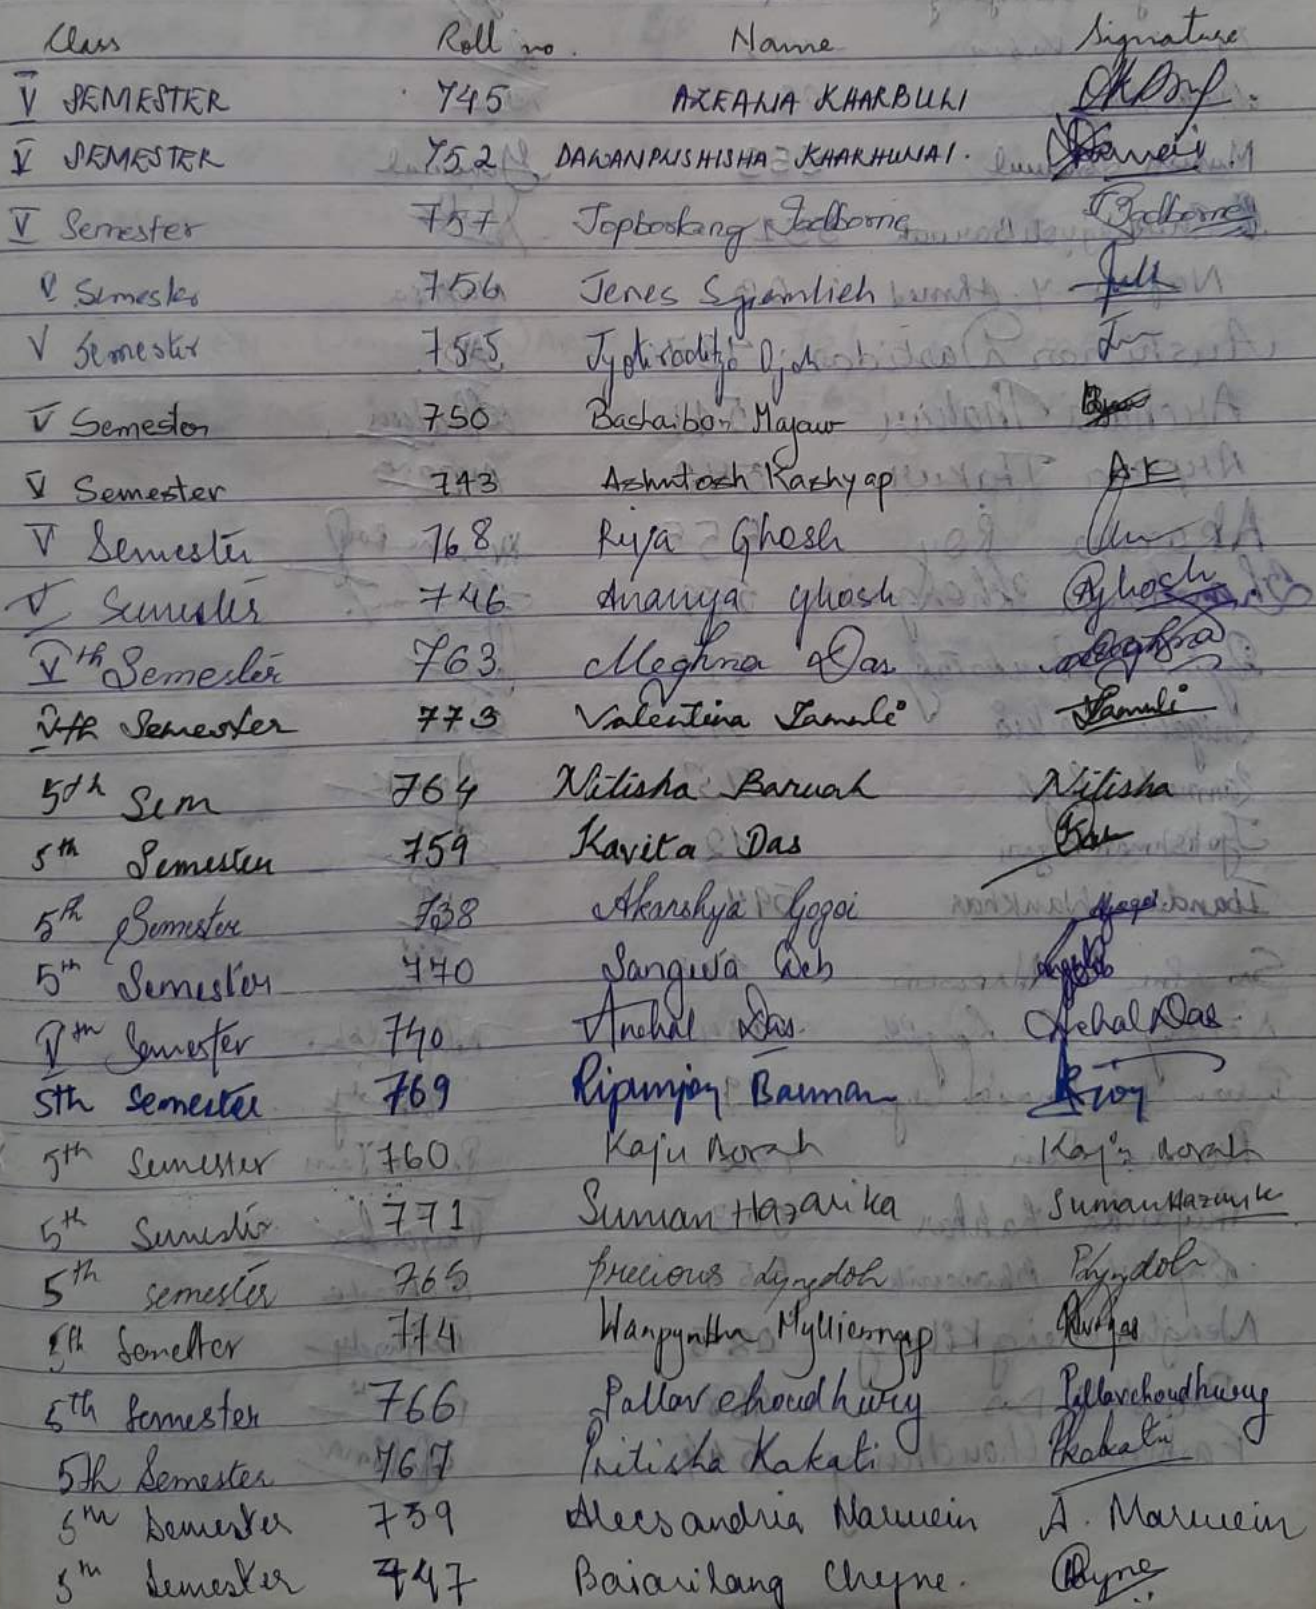 Class Roll no. Name Signature
V SEMESTER 745 AZEALIA KHARBULI
V SEMESTER 752 DAWANPUSHISHA KHARHUNAI.
V Semester 757 Jopborlang Jadborne Jadborne
V Semester 756 Jenes Syiemlieh
V Semester 755 Jyotiraditya
V Semester 750 Bashaibor Majaw
V Semester 743 Ashutosh Kashyap AK
V Semester 768 Riya Ghosh
V Semester 746 Ananya ghosh Aghosh
Vth Semester 763 Meghna Das Meghna
Vth Semester 773 Valentina Jamuli Jamuli
5th Sem 764 Nitisha Baruah Nitisha
5th Semester 759 Kavita Das
5th Semester 738 Akanshya Gogoi Agogoi
5th Semester 770 Sangita Deb
Vth Semester 740 Anchal Das. Achal Das.
5th Semester 769 Ripunjoy Barman
5th Semester 760 Kaju Borah Kaju Borah
5th Semester 771 Suman Hazarika Suman Hazarik
5th semester 765 precious Lyngdoh Plyngdoh
5th Semester 774 Wanpynthu Mylliemngap
5th Semester 766 Pallav choudhury Pallavchoudhury
5th Semester 767 Pritisha Kakati Pkakati
5th Semester 739 Alecsandria Marwein A. Marwein
5th Semester 747 Baiarilang Chyne.